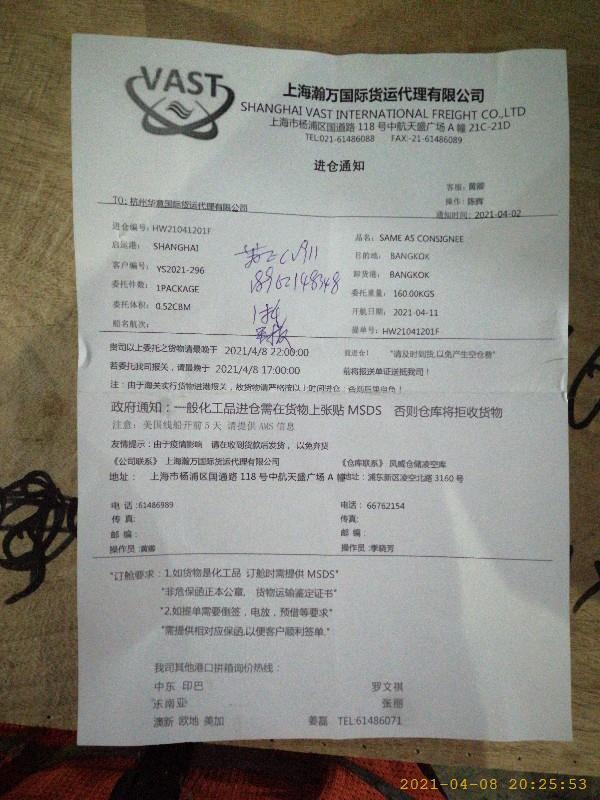 VAST
上海瀚万国际货运代理有限公司
SHANGHAI VAST INTERNATIONAL FREIGHT CO.,LTD
上海市杨浦区国道路 118 号中航天盛广场 A 幢 21C-21D
TEL:021-61486088 FAX:-21-61486089
进仓通知
客服：黄卿
操作：陈辉
TO: 杭州华意国际货运代理有限公司
通知时间：2021-04-02
进仓编号：HW21041201F
品名：SAME AS CONSIGNEE
启运港： SHANGHAI
目的地： BANGKOK
客户编号： YS2021-296
卸货港： BANGKOK
委托件数： 1PACKAGE
委托重量： 160.00KGS
委托体积： 0.52CBM
开航日期： 2021-04-11
船名航次：
提单号：HW21041201F
18962148348
贵司以上委托之货物请最晚于 2021/4/8 22:00:00 前进仓！ "请及时到货,以免产生空仓费"
若委托我司报关，请最晚于 2021/4/8 17:00:00 前将报送单证送抵我司！
注：由于海关实行货物进港报关，故货物请严格按以上时间进仓，否则后果自负！
政府通知：一般化工品进仓需在货物上张贴 MSDS 否则仓库将拒收货物
注意：美国线船开前 5 天 请提供 AMS 信息
友情提示：由于疫情影响 请在收到货款后发货，以免弃货
《公司联系》上海瀚万国际货运代理有限公司
《仓库联系》风威仓储凌空库
地址： 上海市杨浦区国通路 118 号中航天盛广场 A 幢
地址：浦东新区凌空北路 3160 号
电 话 :61486989
电话： 66762154
传 真:
传真:
邮 编：
邮 编：
操作员 :黄卿
操作员 :李晓芳
"订舱要求：1.如货物是化工品 订舱时需提供 MSDS"
"非危保函正本公章， 货物运输鉴定证书"
"2.如提单需要倒签，电放，预借等要求"
"需提供相对应保函,以便客户顺利签单."
我司其他港口拼箱询价热线：
中东 印巴 罗文祺
东南亚 张丽
澳新 欧地 美加 姜磊 TEL:61486071
2021-04-08 20:25:53